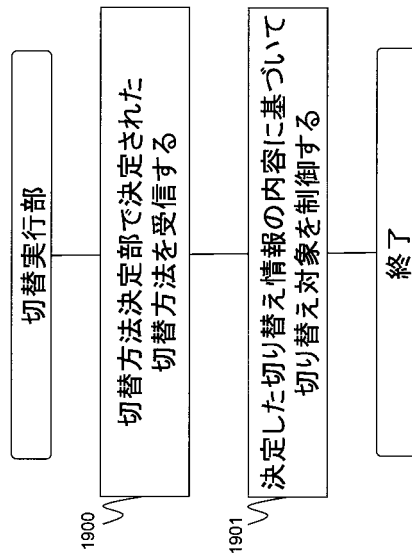 切替実行部
1900
切替方法決定部で決定された
切替方法を受信する
1901
決定した切り替え情報の内容に基づいて
切り替え対象を制御する
終了